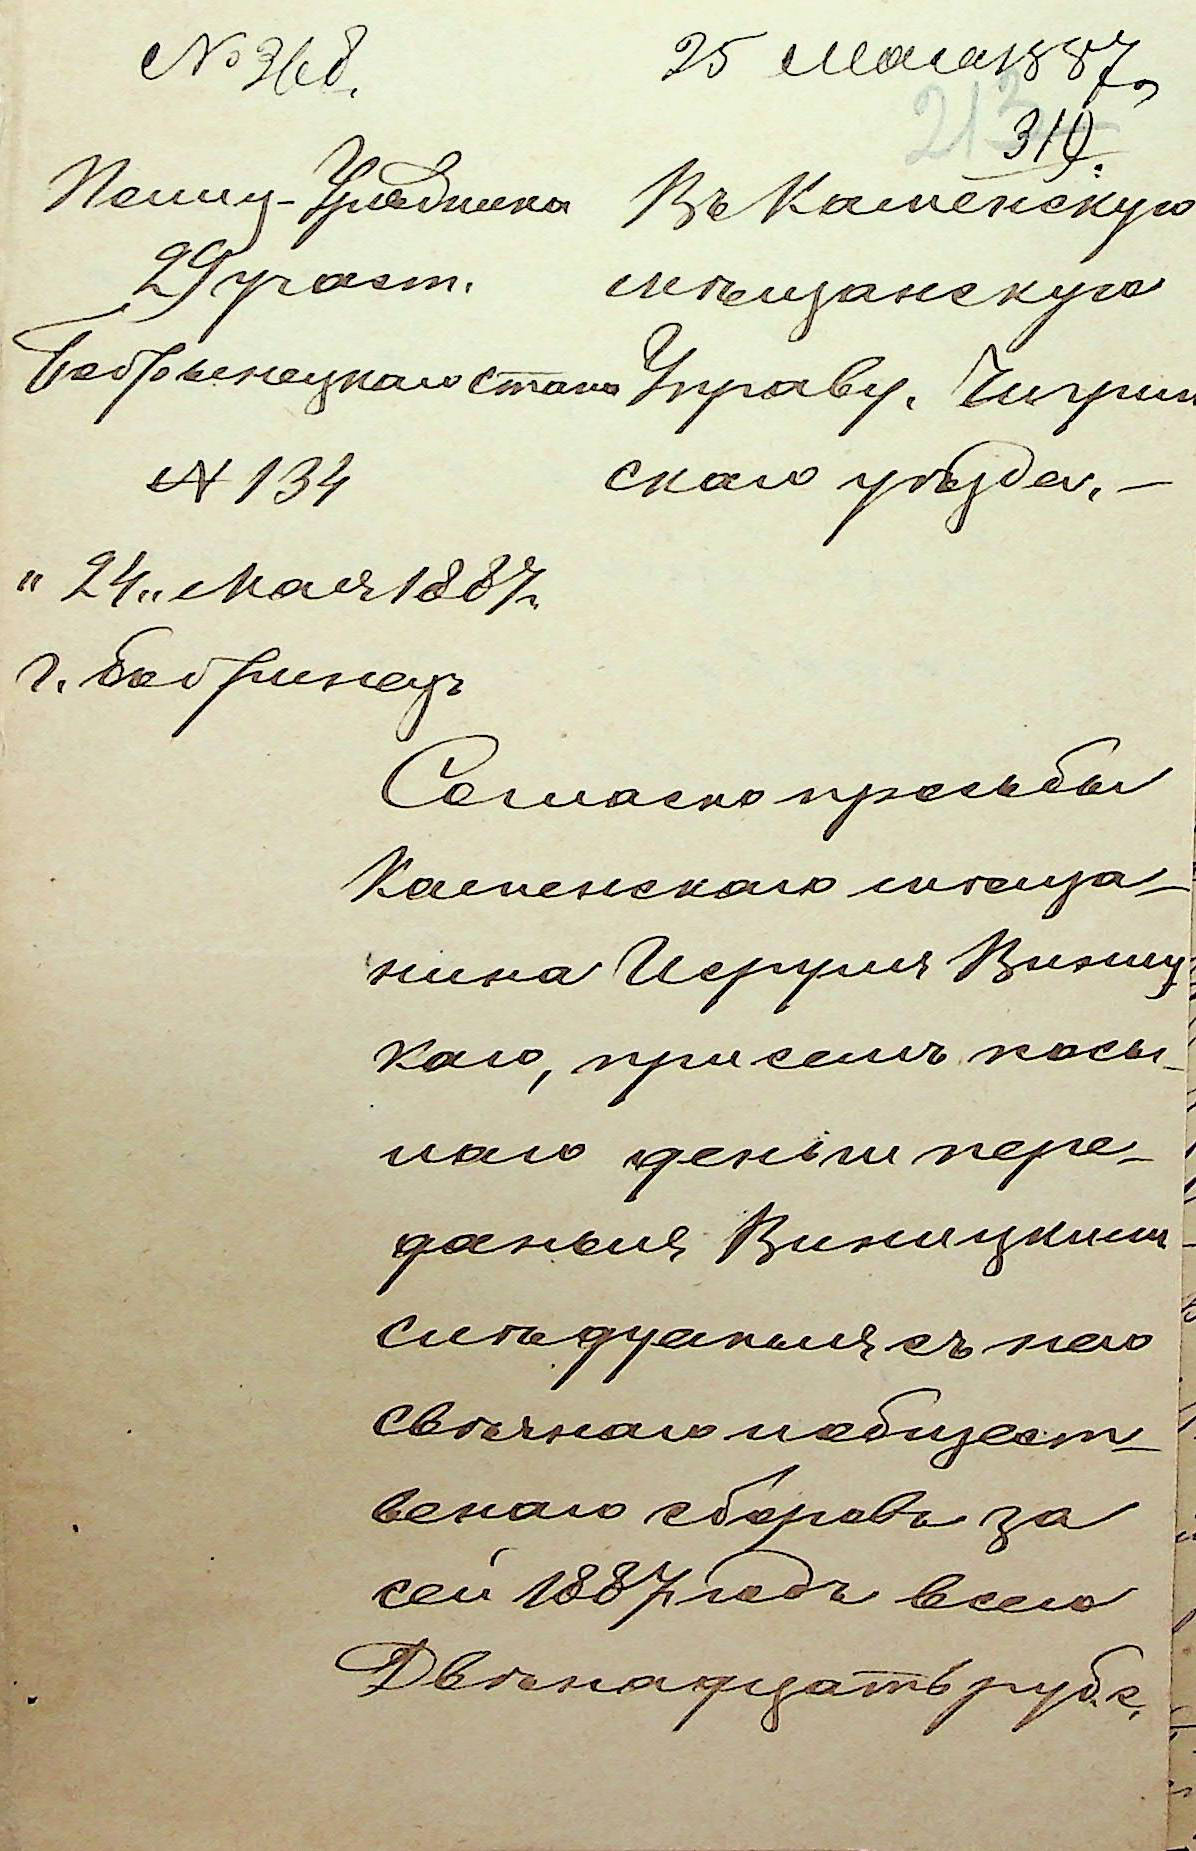 № 368.
25 мая 1887 г.
213
310.
Полиц-Урядника
29 участ.
Бобрынецкаго стана
№ 134
"24" мая 1887 г.
г. Бобринец
Въ Каменскую
мѣщанскую
Управу, Чигрин
скаго уѣзда. —
Согласно просьбы
Каменскаго мѣща-
нина Виниц
каго, при семъ посы-
лаю деньги пере-
даныя Виницкимъ
слѣдуемыя съ него
свѣчнаго и общест-
венаго сборовъ за
сей 1887 годъ всего
Двѣнадцать руб. с.